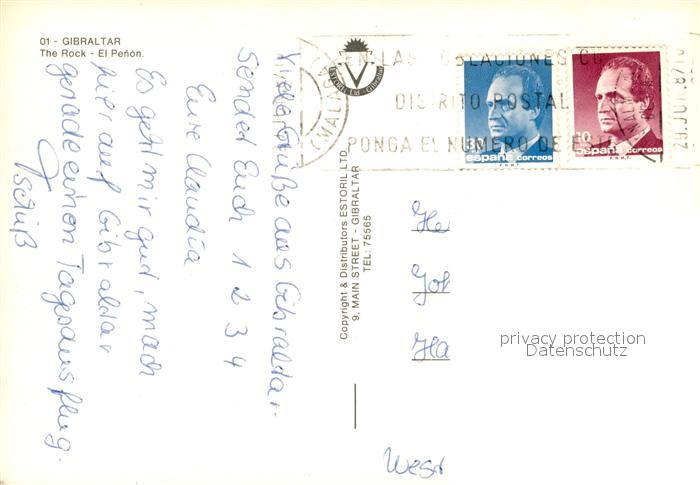 01 - GIBRALTAR
The Rock - El Peñón.
Viele Grüße aus Gibraltar
Sendet Euch 1 2 3 4
Eure Claudia.
Es geht mir gut, mach
hier auf Gibraltar
gerade einen Tagesausflug.
Tschüß
ESTORIL Ltd Gibraltar
V
Copyright & Distributors ESTORIL LTD.
9, MAIN STREET - GIBRALTAR
TEL: 75565
EN LAS POBLACIONES CO
DISTRITO POSTAL
PONGA EL NUMERO DE E
MALAGA
30
españa correos
F.N.M.T.
10
españa correos
F.N.M.T.
He
Joh
Ha
privacy protection
Datenschutz
West